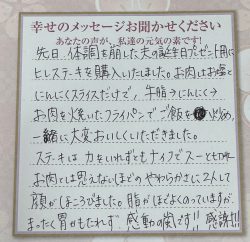 幸せのメッセージお聞かせください
あなたの声が、私達の元気の素です!
先日 体調を崩した夫の誕生日プレゼント用に
ヒレステーキを購入いたしました。お肉はお塩と
にんにくスライスだけで、牛脂→にんにく→
お肉を焼いたフライパンでご飯を炒め、
一緒に大変おいしくいただきました。
ステーキは力をいれずともナイフでスーと切れ
お肉とは思えないほどのやわらかさに2人して
顔がほころびました。脂がほどよくのっていますが
まったく胃がもたれず 感動の嵐です!! 感謝!!!